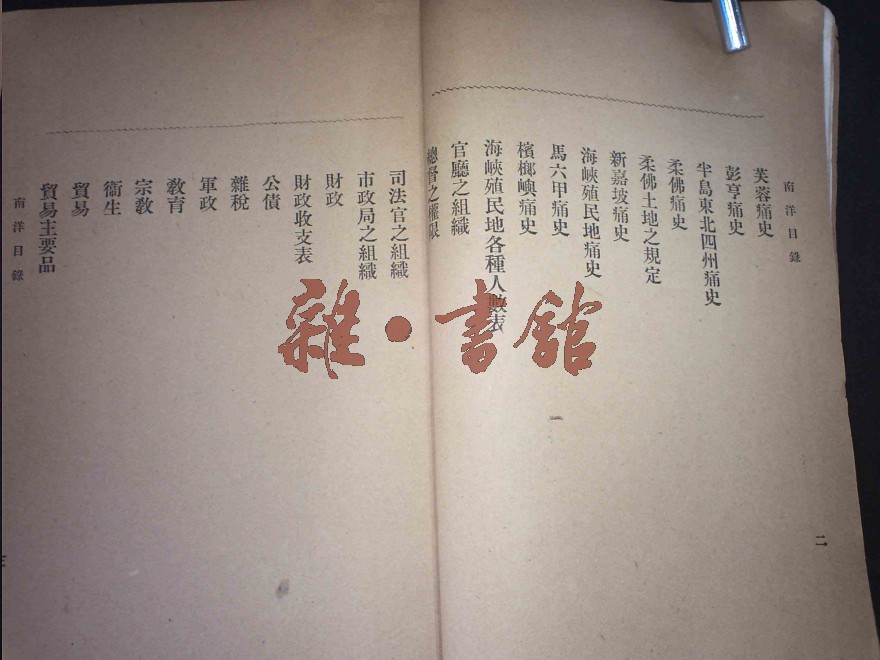 南洋目錄
芙蓉痛史
彭亨痛史
半島東北四州痛史
柔佛痛史
柔佛土地之規定
新嘉坡痛史
海峽殖民地痛史
馬六甲痛史
檳榔嶼痛史
海峽殖民地各種人數表
官廳之組織
總督之權限
二
司法官之組織
市政局之組織
財政
財政收支表
公債
雜稅
軍政
敎育
宗敎
衞生
貿易
貿易主要品
南洋目錄
雜·書館